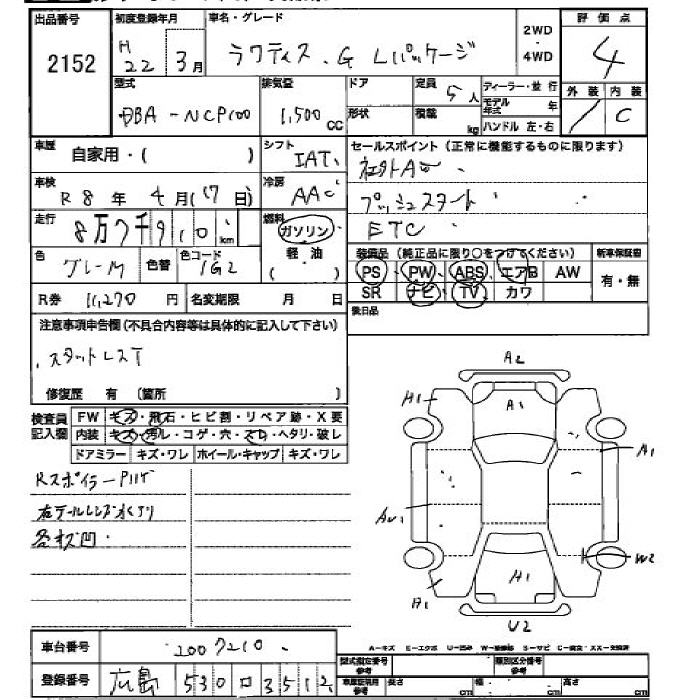 出品番号 2152
初度登録年月 H22 3月
車名・グレード ラクティス . G Lパッケージ
2WD ・ 4WD
評価点 4
型式 DBA-NCP100
排気量 1,500 cc
ドア 形状
定員 5人
積載 kg
ディーラー・並行
モデル年式 年
ハンドル 左・右
外装 内装 C
車歴 自家用・( )
シフト IAT
セールスポイント (正常に機能するものに限ります)
車検 R8年 4月(17日)
冷房 AAC
社外AW
プッシュスタート
ETC
走行 8万7千910 km
燃料 ガソリン 軽・油 ( )
色 グレーM 色替 色コード 1G2
装備品 (純正品に限り○をつけてください) 新車保証書
PS PW ABS エアB AW 有・無
SR ナビ TV カワ
R券 11,270 円 名変期限 月 日
後日品
注意事項申告欄(不具合内容等は具体的に記入して下さい)
スタットレスT
修復歴 有 〔箇所 〕
検査員記入欄
FW キズ・飛石・ヒビ割・リペア跡・X要
内装 キズ・汚レ・コゲ・穴・スレ・ヘタリ・破レ
ドアミラー キズ・ワレ ホイール・キャップ キズ・ワレ
Rスポイラー
右テールレンズ
各板凹
A2
A1
A1
A1
AU1
W2
A1
A1
U2
車台番号 2007210
登録番号 広島 530 ロ 3512
A-キズ E-エクボ U-凹み
型式指定番号 参考
類別区分番号 参考
長さ cm 幅 cm 高さ cm